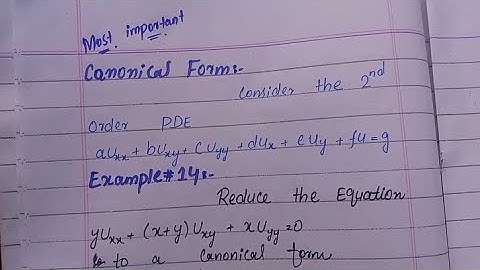 Most important
Canonical Form:-
Consider the 2nd
Order PDE
auxx + buxy + cuyy + dux + euy + fu = g
Example#14:-
Reduce the Equation
yuxx + (x+y) uxy + xuyy = 0
to a canonical form